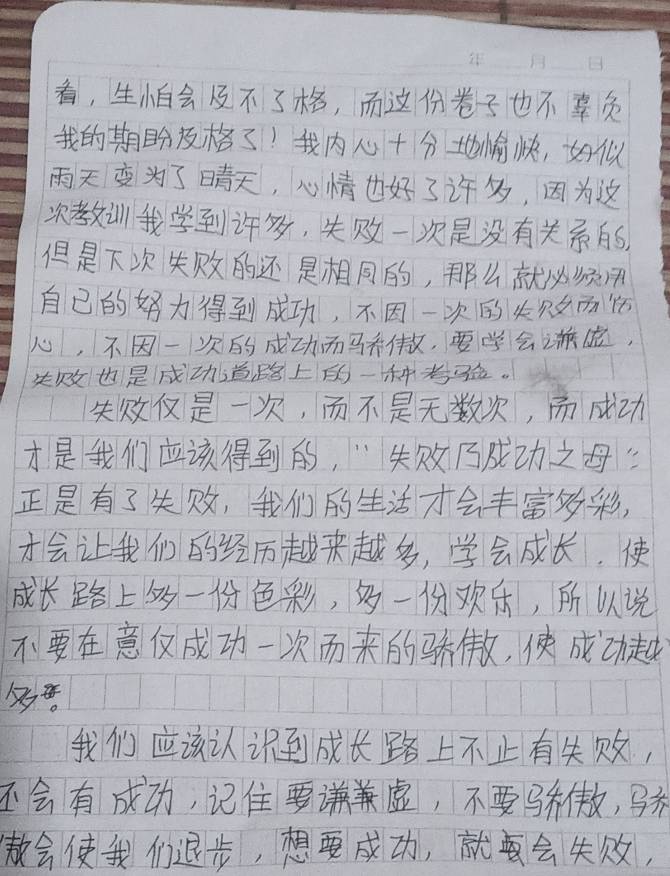 年 月 日
看，生怕会及不了格，而这份卷子也不辜负
我的期盼及格了！我内心十分地愉快，好似
雨天变为了晴天，心情也好了许多，因为这
次教训我学到许多，失败一次是没有关系的，
但是下次失败的还是相同的，那么就必须用
自己的努力得到成功，不因一次的失败而伤
心，不因一次的成功而骄傲，要学会谦虚，
失败也是成功道路上的一种考验。
失败仅是一次，而不是无数次，而成功
才是我们应该得到的，“失败乃成功之母”：
正是有了失败，我们的生活才会丰富多彩，
才会让我们的经历越来越多，学会成长，使
成长路上多一份色彩，多一份欢乐，所以说
不要在意仅成功一次而来的骄傲，使成功越
多。
我们应该认识到成长路上不止有失败，
还会有成功，记住要谦虚，不要骄傲，骄
傲会使我们退步，想要成功，就要会失败，